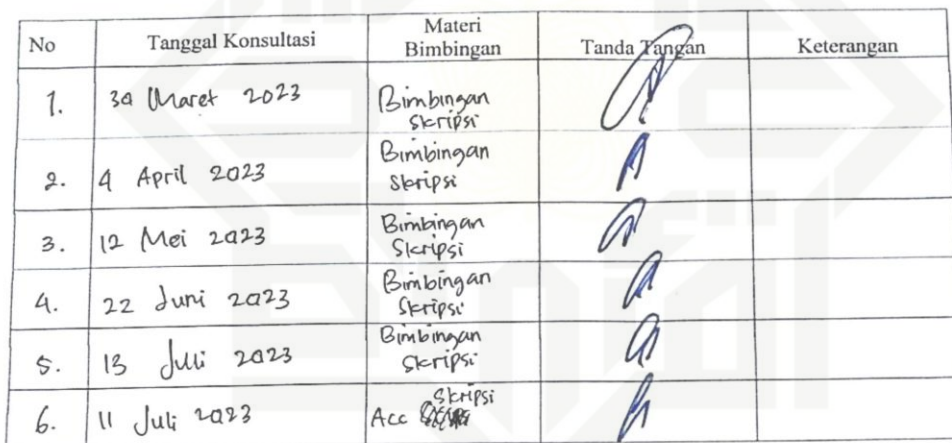 No Tanggal Konsultasi Materi Bimbingan Tanda Tangan Keterangan
1. 30 Maret 2023 Bimbingan
Skripsi
2. 4 April 2023 Bimbingan
Skripsi
3. 12 Mei 2023 Bimbingan
Skripsi
4. 22 Juni 2023 Bimbingan
Skripsi
5. 13 Juli 2023 Bimbingan
Skripsi
6. 11 Juli 2023 Acc Skripsi